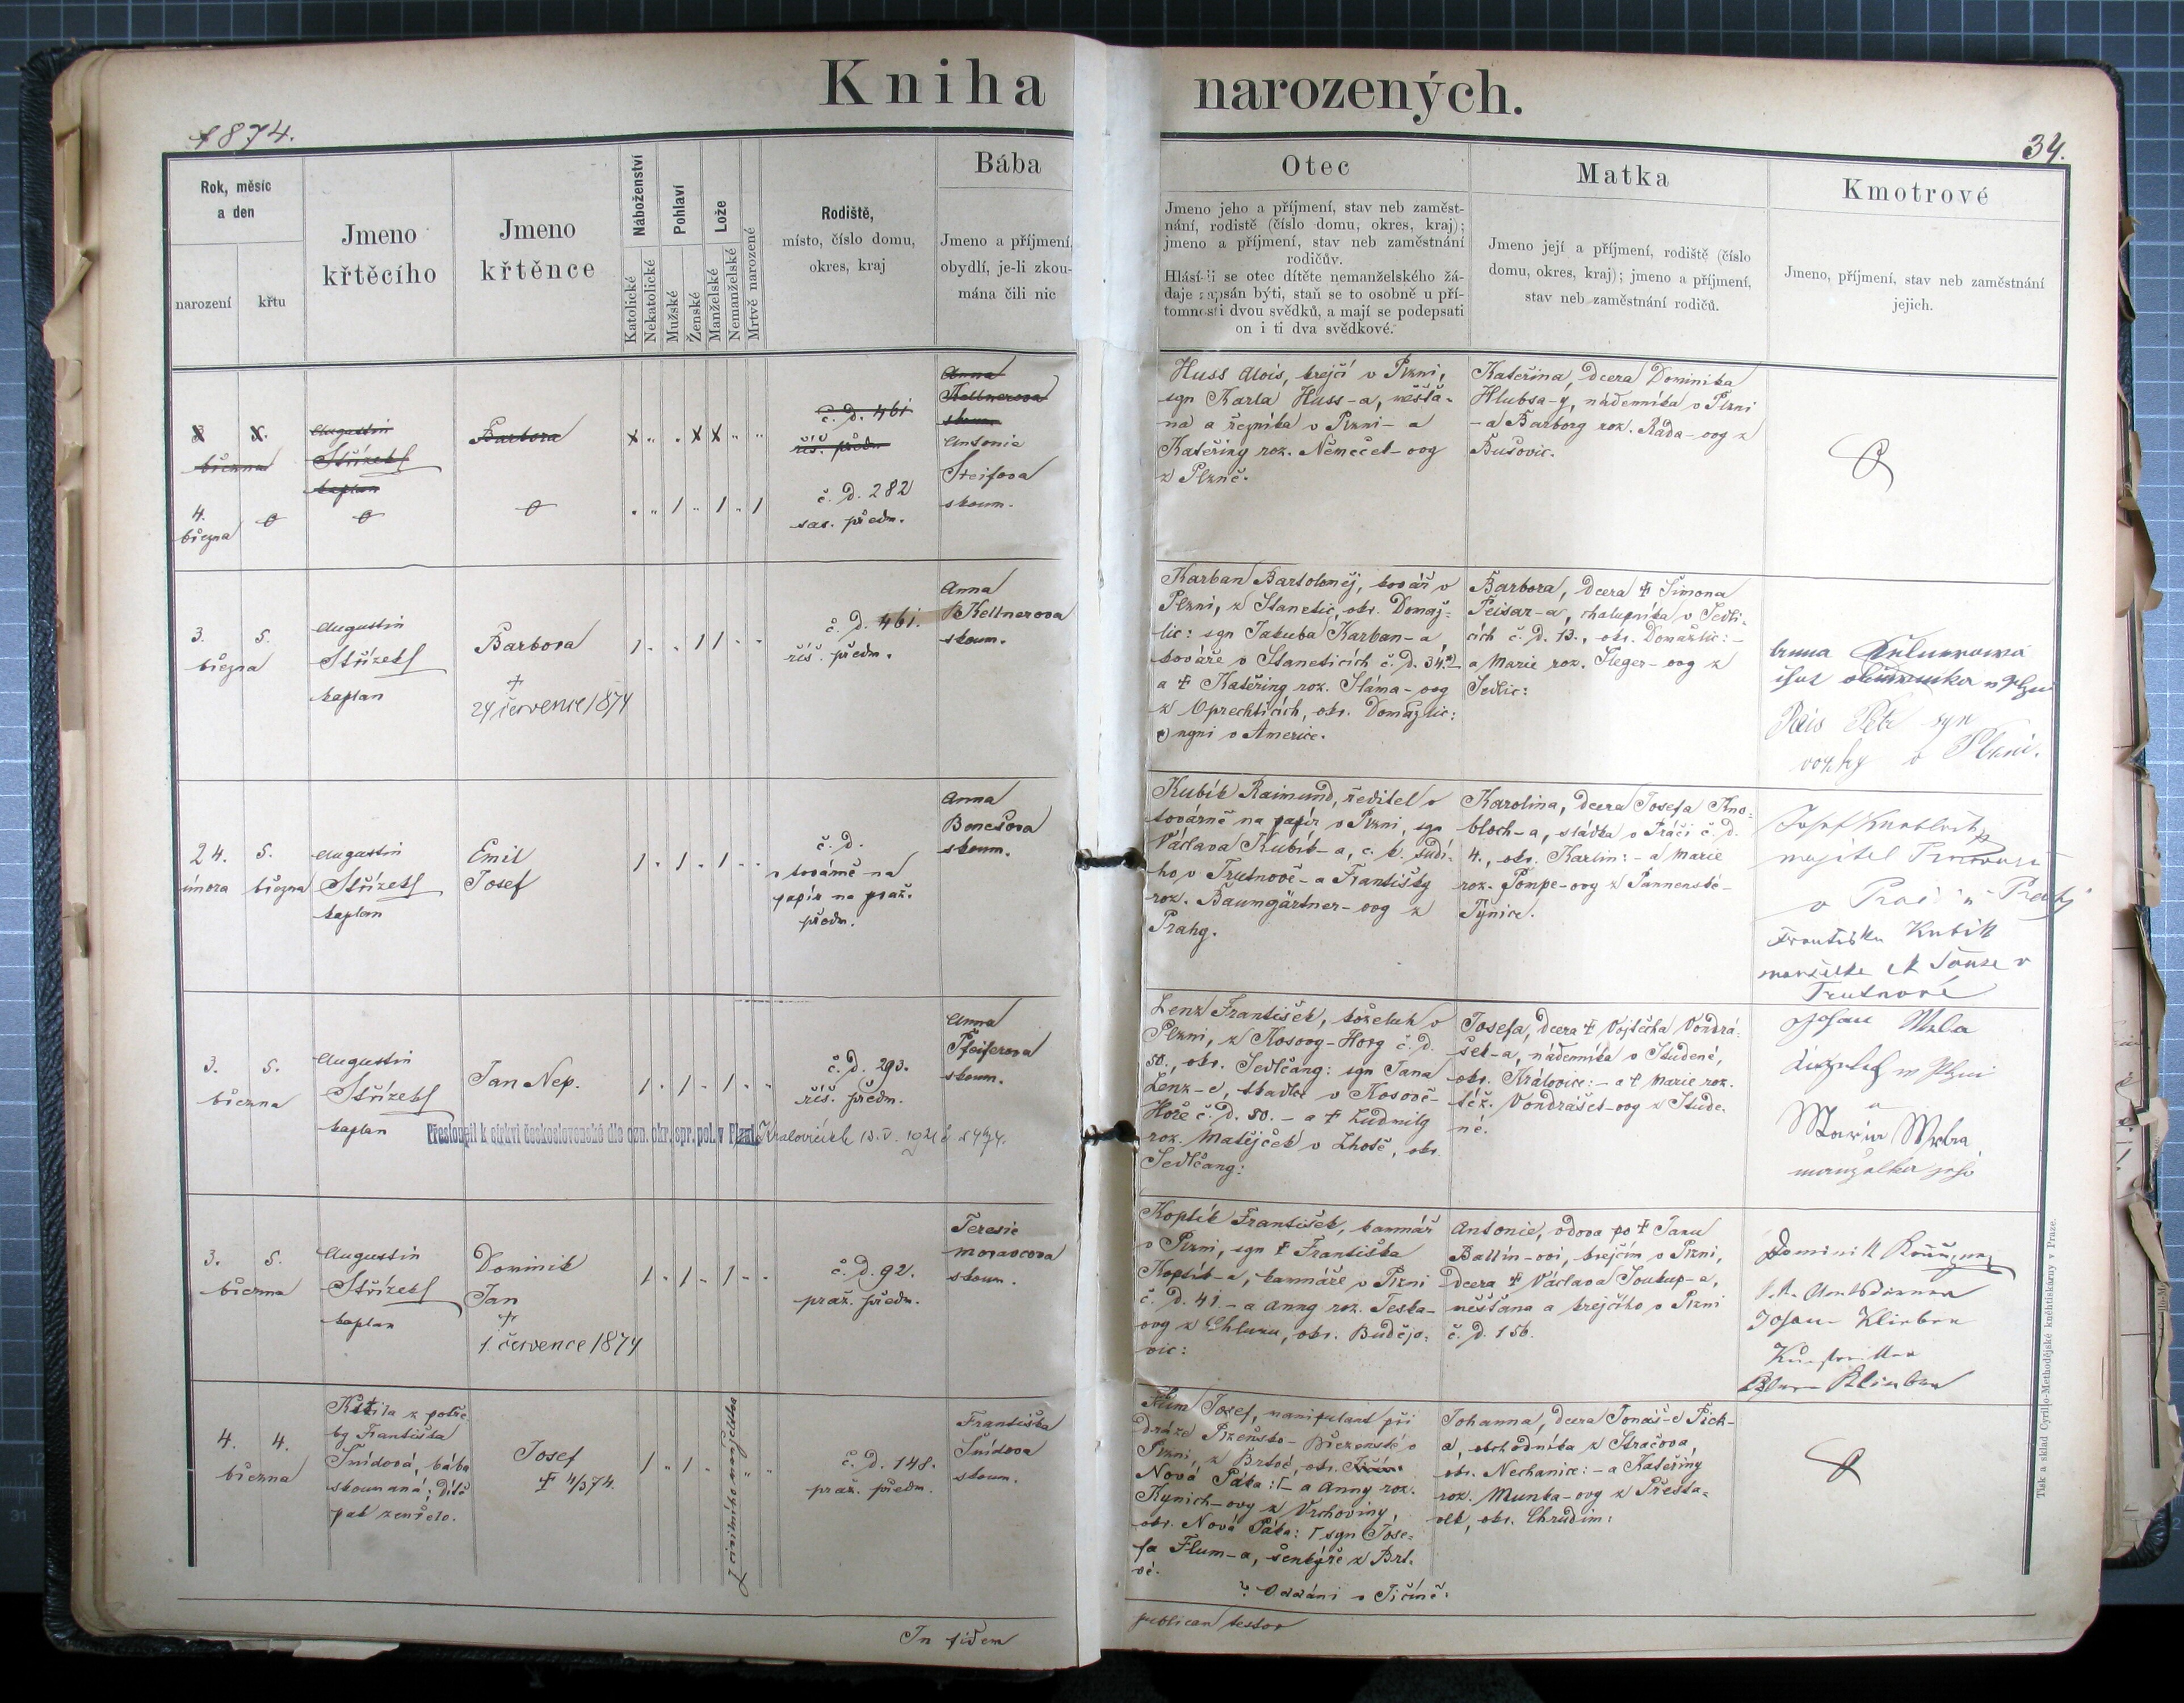 Kniha narozených.
1874.
34.
Rok, měsíc
a den
narození
křtu
Jmeno
křtěcího
Jmeno
křtěnce
Náboženství
Katolické
Nekatolické
Pohlaví
Mužské
Ženské
Lože
Manželské
Nemanželské
Mrtvě narozené
Rodiště,
místo, číslo domu,
okres, kraj
Bába
Jmeno a příjmení,
obydlí, je-li zkou-
mána čili nic
Otec
Jmeno jeho a příjmení, stav neb zaměst-
nání, rodiště (číslo domu, okres, kraj);
jmeno a příjmení, stav neb zaměstnání
rodičův.
Hlásí-li se otec dítěte nemanželského žá-
daje zapsán býti, staň se to osobně u pří-
tomnosti dvou svědků, a mají se podepsati
on i ti dva svědkové.
Matka
Jmeno její a příjmení, rodiště (číslo
domu, okres, kraj); jmeno a příjmení,
stav neb zaměstnání rodičů.
Kmotrové
Jmeno, příjmení, stav neb zaměstnání
jejich.
března
Augustin
Střízek
kaplan
Barbora
č. D. 461
říš. předm
Anna
Kellnerova
skoum.
4.
března
č. D. 282
sas. předm.
Antonie
Steifova
skoum.
Huss Alois, krejčí v Plzni,
syn Karla Huss-a, měšťa-
na a řezníka v Plzni - a
Kateřiny roz. Němeček-ovy
z Plzně.
Kateřina, dcera Dominika
Hlubsa-y, nádenníka v Plzni
- a Barbory roz. Rada-ovy z
Bušovic.
3.
5.
března
Augustin
Střízek
kaplan
Barbora
†
24 července 1874
č. D. 461.
říš. předm.
Anna
Kellnerova
skoum.
Karban Bartoloměj, kovář v
Plzni, z Stanětic, okr. Domaž-
lic: syn Jakuba Karban-a
kováře v Staněticích č. D. 34.
a † Kateřiny roz. Sláma-ovy
z Oprechticích, okr. Domažlic:
nyní v Americe.
Barbora, dcera † Šimona
Peisar-a, chalupníka v Sedli-
cích č. D. 13., okr. Domažlic: -
a Marie roz. Steger-ovy z
Sedlic:
Petr syn
v Plzni.
24.
února
5.
března
Augustin
Střízek
kaplan
Emil
Josef
č. D.
v továrně na
papír na praž.
předm.
Anna
Benešova
skoum.
Kubík Raimund, ředitel v
továrně na papír v Plzni, syn
Václava Kubík-a, c. k. sudí-
ho v Trutnově - a Františky
roz. Baumgärtner-ovy z
Prahy.
Karolina, dcera Josefa Kno-
bloch-a, sládka v Práči č. D.
4., okr. Karlin: - a Marie
roz. Pompe-ovy z Pannenské-
Týnice.
Josef Knobloch
majitel
Františka Kubik
manželka
Trutnově
3.
5.
března
Augustin
Střízek
kaplan
Jan Nep.
č. D. 293.
říš. předm.
Anna
Pfeiferova
skoum.
Přestoupil k církvi československé dle ozn. okr. spr. pol. v Kralovicích 13. V. 1921 č 5474.
Lenz František, koželuh v
Plzni, z Kosovy-Hory č. D.
50., okr. Sedlčany: syn Jana
Lenz-e, tkadlce v Kosově-
Hoře č. D. 50. - a † Ludmily
roz. Matějček v Lhotě, okr.
Sedlčany:
Josefa, dcera † Vojtěcha Vondrá-
šek-a, nádenníka v Studené,
okr. Královice: - a † Marie roz.
též. Vondrášek-ovy z Stude-
né.
a
manželka jeho
3.
5.
března
Augustin
Střízek
kaplan
Dominik
Jan
†
1. července 1874
č. D. 92.
praž. předm.
Teresie
Moravcova
skoum.
Koptík František, kamnář
v Plzni, syn † Františka
Koptík-a, kamnáře v Plzni
č. D. 41 - a Anny roz. Teska-
ovy z Chlumu, okr. Budějo-
vic:
Antonie, vdova po † Janu
Ballín-ovi, krejčím v Plzni,
dcera † Václava Soukup-a,
měšťana a krejčího v Plzni
č. D. 156.
Dominik
4.
4.
března
Křtila z potře-
by Františka
Šnídová, bába
skoumaná; dítě
pak zemřelo.
Josef
† 4/3 74.
Z civilního manželstva
č. D. 148.
praž. předm.
Františka
Šnídova
skoum.
Flum Josef, manipulant při
dráze Plzeňsko-Březenské v
Plzni, z Brtvé, okr. Jičín:
Nová Páka: - a Anny roz.
Kynich-ovy z Vrchoviny,
okr. Nová Páka: syn Jose-
fa Flum-a, šenkýře z Brt-
vé.
Oddáni v Jičíně:
Johanna, dcera Tomáš-e Pick-
a, obchodníka z Stračova,
okr. Nechanice: - a Kateřiny
roz. Munka-ovy z Přesta-
vlk, okr. Chrudim:
In fidem
publicam testor
Tisk a sklad Cyrillo-Methodějské knihtiskárny v Praze.